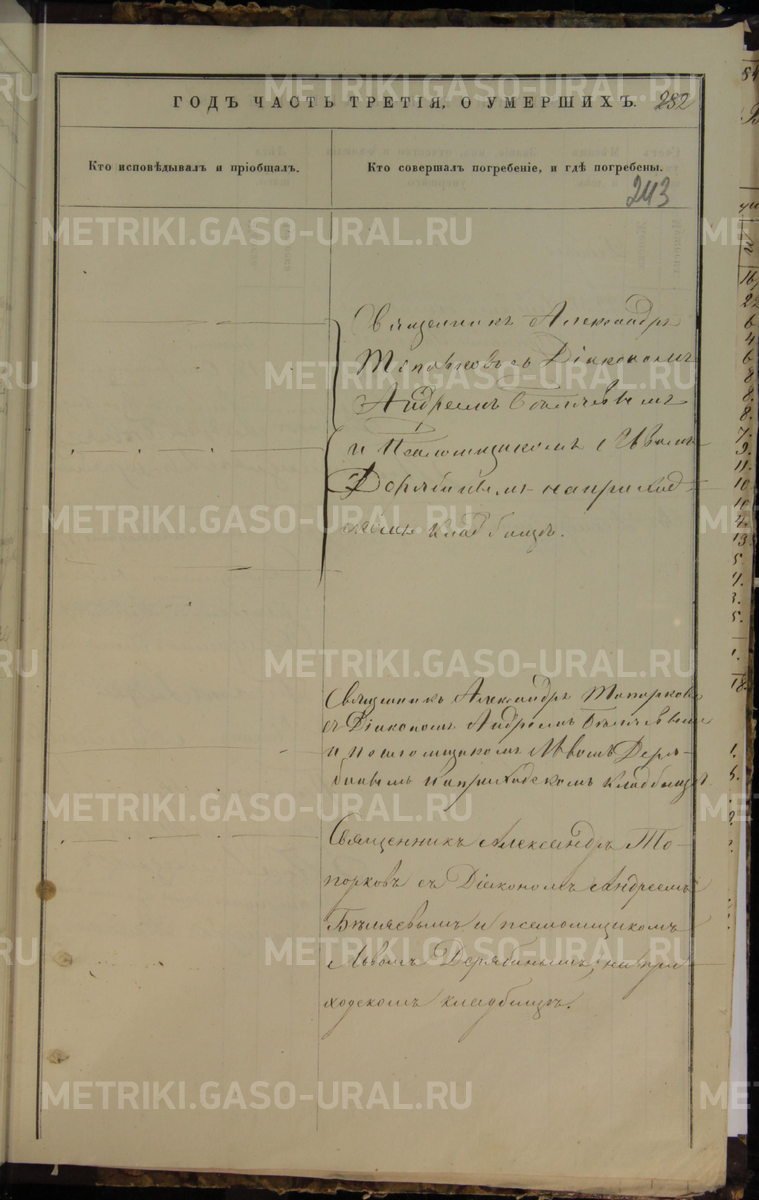 ГОДЪ ЧАСТЬ ТРЕТІЯ, О УМЕРШИХЪ. 282
Кто исповѣдывалъ и пріобщалъ.
Кто совершалъ погребеніе, и гдѣ погребены.
243
Священникъ Александръ
Топорковъ съ Діакономъ
Андреемъ Бѣляевымъ
и Псаломщикомъ Львомъ
Дерябинымъ на приход-
скомъ кладбищѣ.
Священникъ Александръ Топорковъ
съ Діакономъ Андреемъ Бѣляевымъ
и псаломщикомъ Львомъ Деря-
бинымъ на приходскомъ кладбищѣ
Священникъ Александръ То-
порковъ съ Діакономъ Андреемъ
Бѣляевымъ и псаломщикомъ
Львомъ Дерябинымъ, на при-
ходскомъ кладбищѣ.
METRIKI.GASO-URAL.RU